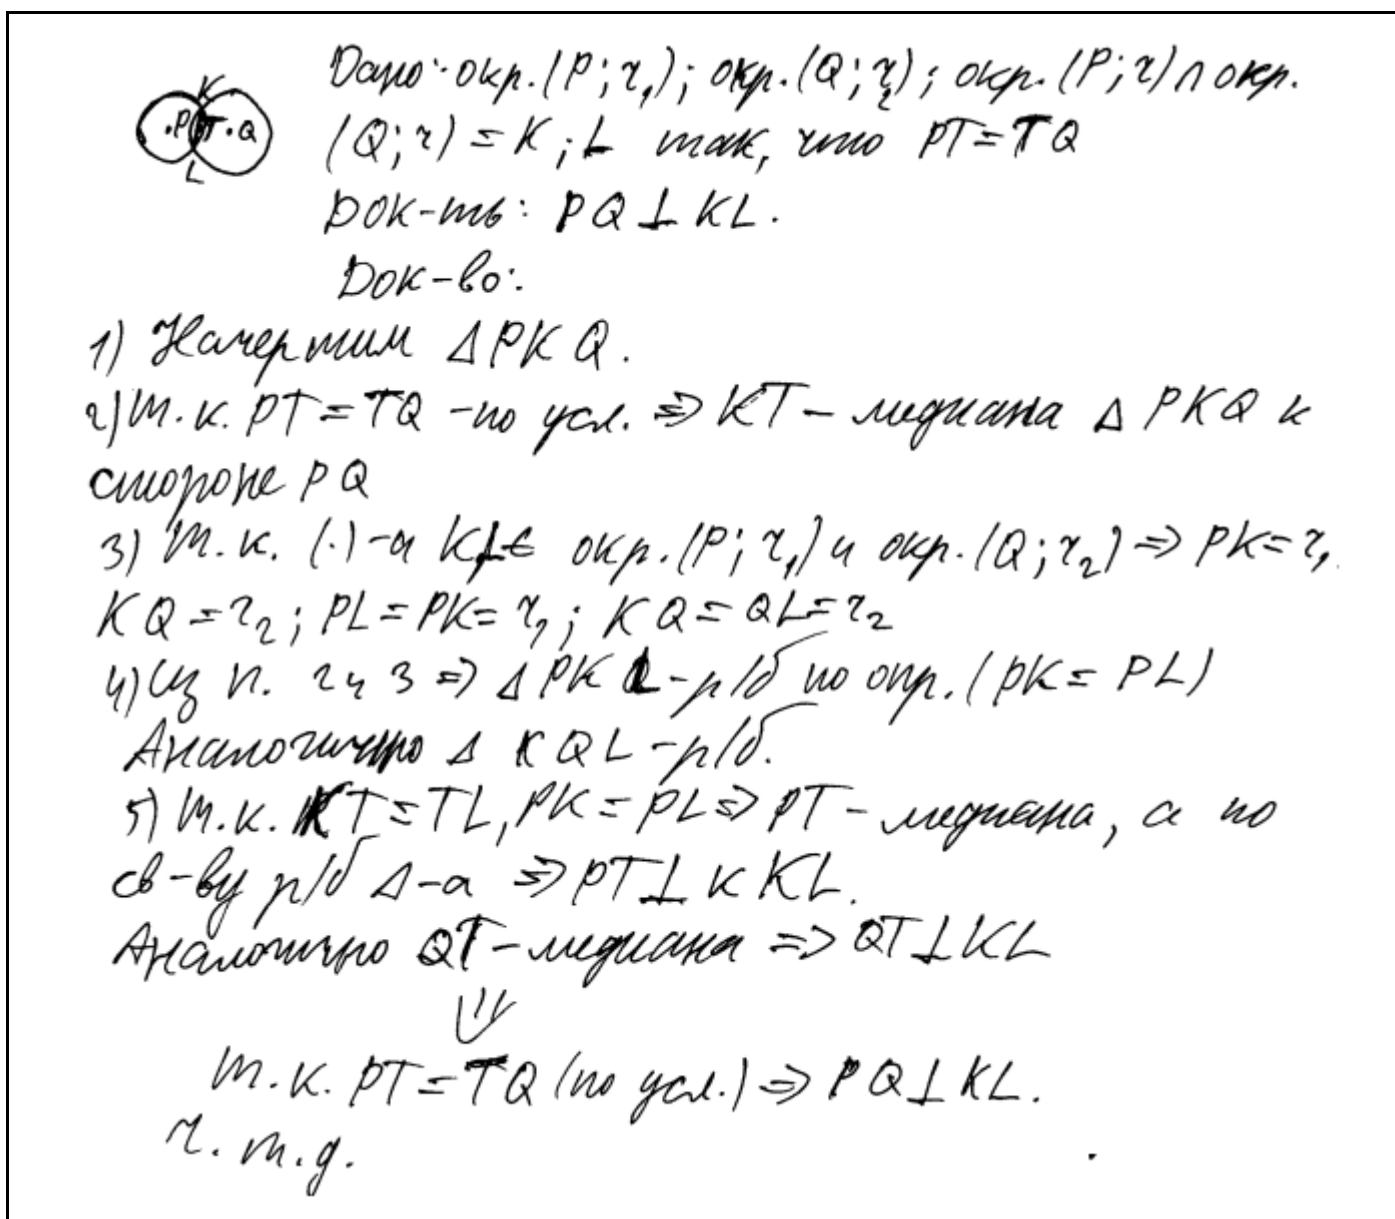 K
.P T .Q
L
Дано: окр.(P; r₁); окр.(Q; r₂); окр.(P; r) ∩ окр.
(Q; r) = K; L так, что PT = TQ
Док-ть: PQ ⊥ KL.
Док-во:
1) Начертим Δ PKQ.
2) Т.к. PT = TQ - по усл. => KT - медиана Δ PKQ к
стороне PQ
3) Т.к. (·)-а K,L ∈ окр.(P; r₁) и окр.(Q; r₂) => PK = r₁
KQ = r₂; PL = PK = r₁; KQ = QL = r₂
4) Из п. 2 и 3 => Δ PKL - р/б по опр. (PK = PL)
Аналогично Δ KQL - р/б.
5) Т.к. KT = TL, PK = PL => PT - медиана, а по
св-ву р/б Δ-а => PT ⊥ к KL.
Аналогично QT - медиана => QT ⊥ KL
⇓
Т.к. PT = TQ (по усл.) => PQ ⊥ KL.
ч.т.д.